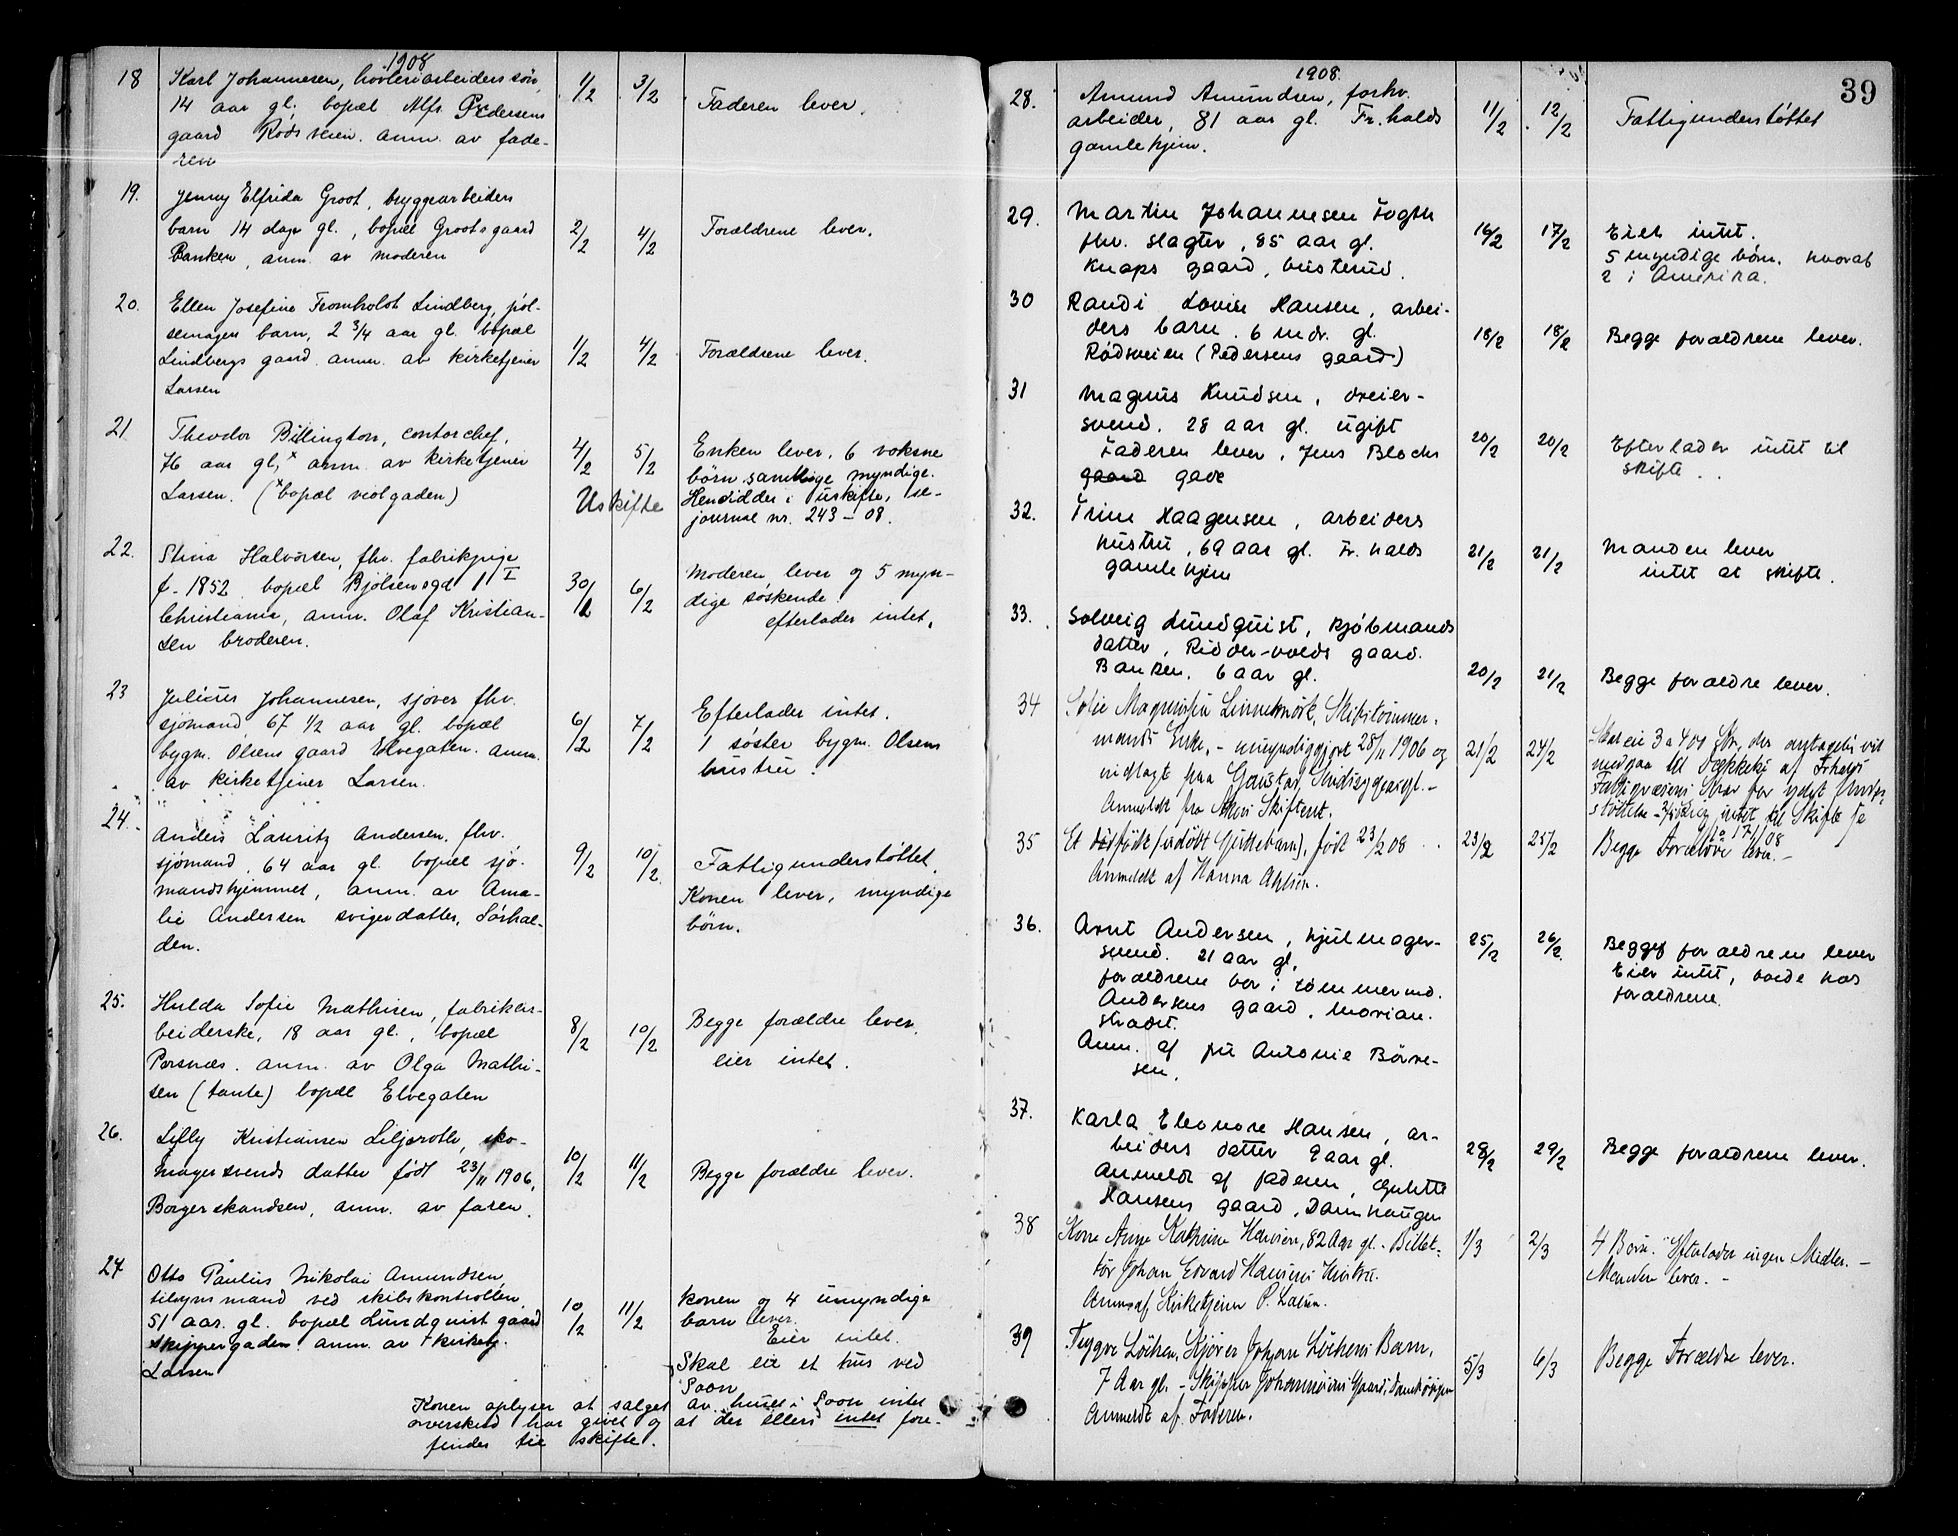 1908
18 Karl Johannesen, høvleriarbeiders søn, 1/2 3/2
14 aar gl. bopæl Alfr. Pedersens Faderen lever.
gaard Rødsveien. anm. av fade-
ren
19. Jenny Elfrida Groot, bryggearbeiders
barn 14 dage gl., bopæl Grootsgaard 2/2 4/2 Forældrene lever.
Banken, anm. av moderen
20. Ellen Josefine Tromholdt Lindberg, pøl-
semagers barn, 2 3/4 aar gl. bopæl
Lindbergs gaard. anm. av kirketjener 1/2 4/2 Forældrene lever.
Larsen
21. Theodor Billington, contorchef,
76 aar gl, x anm. av kirketjener 4/2 5/2 Enken lever, 6 voksne
Larsen. (x bopæl violgaden) børn samtlige myndige.
Uskifte Hensidder i uskifte, se
journal nr. 243 – 08.
22. Stina Halvorsen, fhv. fabrikpige
f. 1852. bopæl Bjølsensgd 1 I 30/1 6/2 Moderen lever og 5 myn-
Christiania, anm. Olaf Kristian- dige søskende.
sen broderen. efterlader intet.
23 Julius Johannesen, sjøver fhv.
sjømand, 67 1/2 aar gl. bopæl 6/2 7/2 Efterlader intet.
bygm. Olsens gaard Elvegaten. Anm. 1 søster bygm. Olsens
av kirketjener Larsen. hustru.
24. Anders Lauritz Andersen, fhv.
sjømand, 64 aar gl. bopæl sjø- 9/2 10/2 Fattigunderstøttet.
mandshjemmet, anm. av Ama- Konen lever, myndige
lie Andersen svigerdatter, Sørhal- børn.
den.
25. Hulda Sofie Mathisen, fabrikar-
beiderske, 18 aar gl., bopæl 8/2 10/2 Begge forældre lever.
Porsnæs. anm. av Olga Mathi- eier intet.
sen (tante) bopæl Elvegaten
26. Lilly Kristiansen Liljeroth, sko-
magersvends datter født 23/11 1906, 10/2 11/2 Begge forældre lever.
Borgerskandsen, anm. av faren.
27 Otto Paulus Nikolai Amundsen,
tilsynsmand ved skibskontrollen, Konen og 4 umyndige
51 aar. gl. bopæl Lundquist gaard 10/2 11/2 barn lever.
Skippergaden. anm. av kirketj. Eier intet.
Larsen Skal eie et hus ved
Soon
Konen oplyser at salget av huset i Soon intet
overskud har givet og at der ellers intet fore-
findes til skifte.
39
1908.
28. Amund Amundsen, forhv.
arbeider, 81 aar gl. Fr.halds 11/2 12/2 Fattigunderstøttet
gamlehjem.
29. Martin Johannesen Fogth
fhv. slagter, 85 aar gl. 16/2 17/2 Eier intet.
Knaps gaard, busterud. 5 myndige børn, hvoraf
2 i Amerika.
30 Randi Lovise Hansen, arbei-
ders barn. 6 mdr. gl. 18/2 18/2 Begge forældrene lever.
Rødsveien (Pedersens gaard)
31 Magnus Knudsen, dreier-
svend. 28 aar gl. ugift
Faderen lever, Jens Blochs 20/2 20/2 Efterlader intet til
gaard gade skifte.
32. Trine Haagensen, arbeiders
hustru, 69 aar gl. Fr. halds 21/2 21/2 Manden lever
gamlehjem intet at skifte.
33. Solveig Lundquist, kjøbmands
datter, Ridder-volds gaard.
Banken. 6 aar gl. 20/2 21/2 Begge forældre lever.
34 Sofie Magnusine Linnekrok, Skibstømmer-
mands Enke, – umyndiggjort 28/11 1906 og 21/2 24/2 Skal eie 3 a 400 Kr, der antagelig vil
indlagt paa Gaustad Sindsygeasyl. – medgaa til Dækkelse af Frhalds
Anmeldt fra Skifteret. Fattigvæsens Krav for ydet Under-
støttelse – intet til Skifte se
35 Et dødfødt (udødt Guttebarn), født 23/2 08 23/2 25/2 Begge Forældre lever. –
Anmeldt af Hanna Ahlsen.
36. Arnt Andersen, hjulmager-
svend. 21 aar gl. 25/2 26/2 Begge forældrene lever
forældrene bor i tømmermd. Eier intet, boede hos
Andersens gaard, Marian. forældrene.
stradet.
Anm. af frk Antonie Børre-
sen.
37. Karla Eleonore Hansen, ar-
beiders datter 9 aar gl. 28/2 29/2 Begge forældrene lever.
Anmeldt af faderen, Gulette
Hansens gaard, Damhaugen
38 Kone Anne Kathrine Hansen, 82 Aar gl. – Billet- 1/3 2/3 4 Børn. Efterlader ingen Midler. –
tør Johan Edvard Hansens Hustru. Manden lever. –
Anm. af Kirketjener P. Larsen.
39 Trygve Løkken, Kjører Johan Løkkens Barn,
7 Aar gl. – Skipper Johannesens Gaard, Damhaugen 5/3 6/3 Begge Forældre lever.
Anmeldt af Faderen.